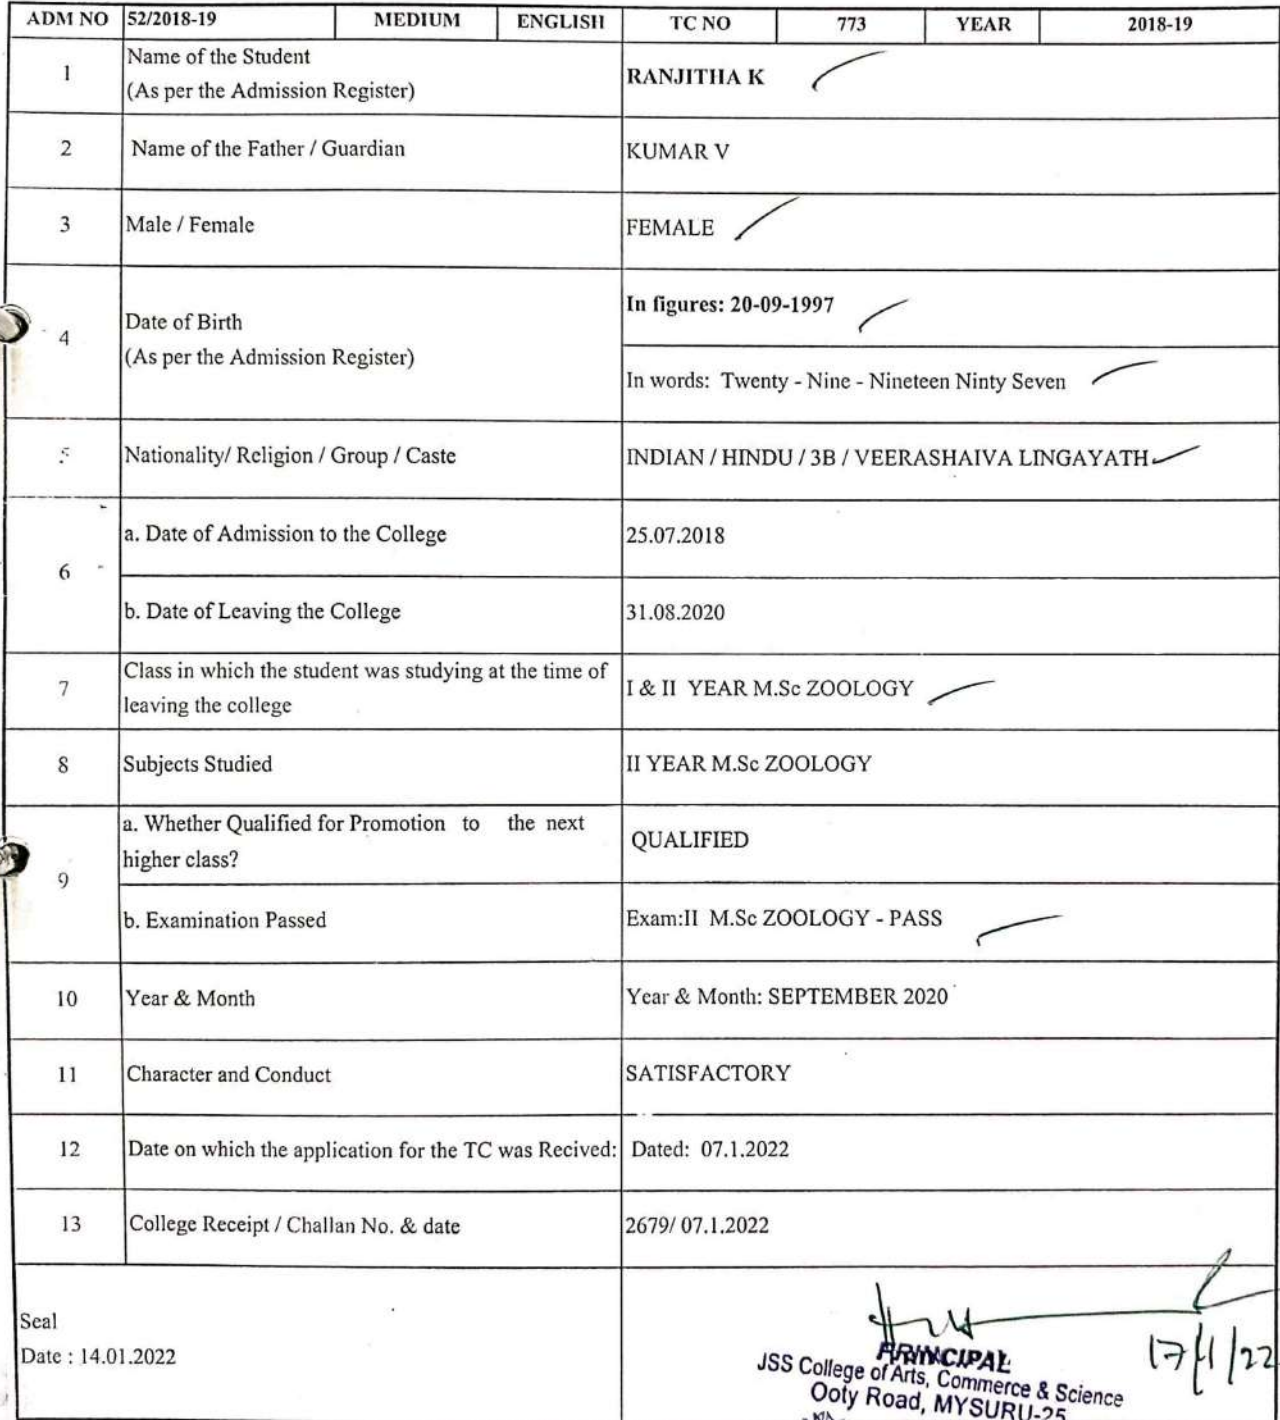 ADM NO 52/2018-19 MEDIUM ENGLISH TC NO 773 YEAR 2018-19
1 Name of the Student
(As per the Admission Register) RANJITHA K
2 Name of the Father / Guardian KUMAR V
3 Male / Female FEMALE
4 Date of Birth
(As per the Admission Register)
In figures: 20-09-1997
In words: Twenty - Nine - Nineteen Ninty Seven
5 Nationality/ Religion / Group / Caste INDIAN / HINDU / 3B / VEERASHAIVA LINGAYATH
6 a. Date of Admission to the College 25.07.2018
b. Date of Leaving the College 31.08.2020
7 Class in which the student was studying at the time of
leaving the college I & II YEAR M.Sc ZOOLOGY
8 Subjects Studied II YEAR M.Sc ZOOLOGY
9 a. Whether Qualified for Promotion to the next
higher class? QUALIFIED
b. Examination Passed Exam:II M.Sc ZOOLOGY - PASS
10 Year & Month Year & Month: SEPTEMBER 2020
11 Character and Conduct SATISFACTORY
12 Date on which the application for the TC was Recived: Dated: 07.1.2022
13 College Receipt / Challan No. & date 2679/ 07.1.2022
Seal
Date : 14.01.2022
17/1/22
PRINCIPAL
JSS College of Arts, Commerce & Science
Ooty Road, MYSURU-25